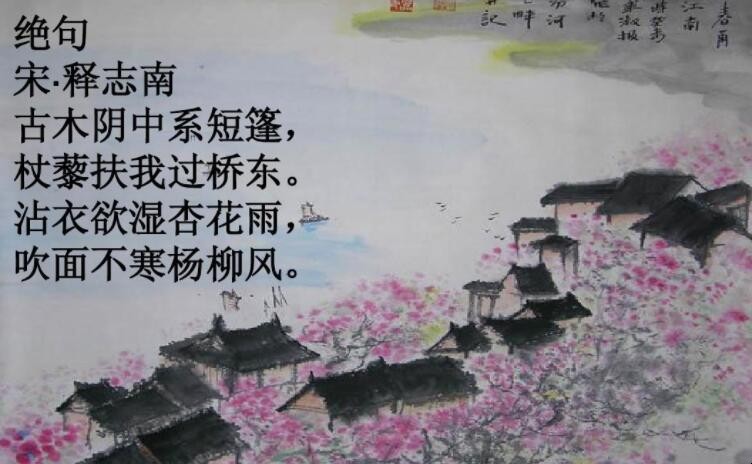 绝句
宋·释志南
古木阴中系短篷，
杖藜扶我过桥东。
沾衣欲湿杏花雨，
吹面不寒杨柳风。
江南